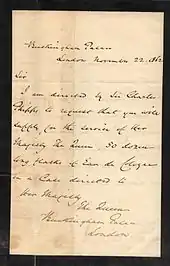 Buckingham Palace
London November 22. 1862
Sir
I am directed by Sir Charles
Phipps to request that you will
supply for the service of Her
Majesty The Queen. 50 dozen
long flasks of Eau de Cologne
in a Case directed to
Her Majesty
The Queen
Buckingham Palace
London